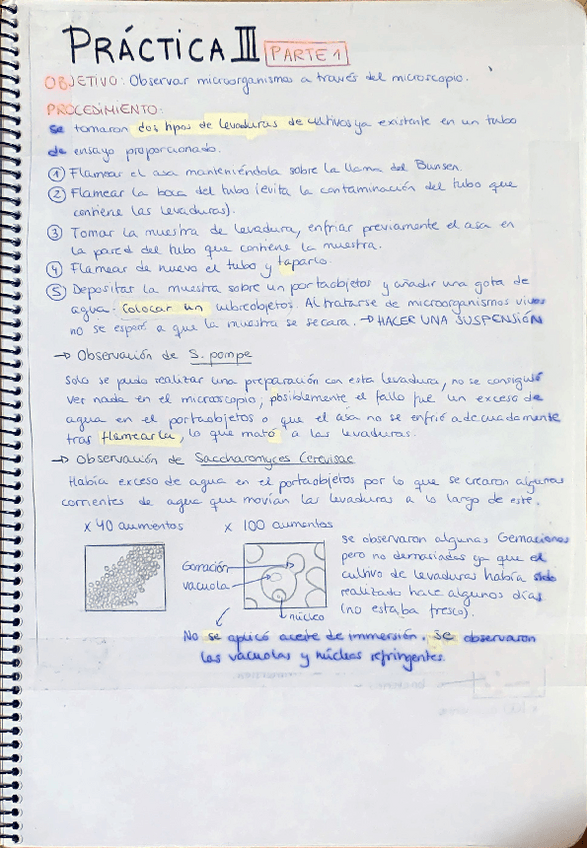 PRÁCTICA III PARTE 1
OBJETIVO: Observar microorganismos a través del microscopio.
PROCEDIMIENTO:
Se tomaron dos tipos de levaduras de cultivos ya existente en un tubo
de ensayo proporcionado.
① Flamear el asa manteniéndola sobre la llama del Bunsen.
② Flamear la boca del tubo (evita la contaminación del tubo que
contiene las levaduras).
③ Tomar la muestra de levadura, enfriar previamente el asa en
la pared del tubo que contiene la muestra.
④ Flamear de nuevo el tubo y taparlo.
⑤ Depositar la muestra sobre un portaobjetos y añadir una gota de
agua. Colocar un cubreobjetos. Al tratarse de microorganismos vivos
no se esperó a que la muestra se secara. → HACER UNA SUSPENSIÓN
→ Observación de S. pompe
Solo se pudo realizar una preparación con esta levadura, no se consiguió
ver nada en el microscopio; posiblemente el fallo fue un exceso de
agua en el portaobjetos o que el asa no se enfrió adecuadamente
tras flamearla, lo que mató a las levaduras.
→ Observación de Saccharomyces Cerevisae
Había exceso de agua en el portaobjetos por lo que se crearon algunas
corrientes de agua que movían las levaduras a lo largo de este.
x 40 aumentos x 100 aumentos
Gemación
vacuola
núcleo
se observaron algunas Gemaciones
pero no demasiadas ya que el
cultivo de levaduras había sido
realizado hace algunos días
(no estaba fresco).
No se aplicó aceite de immersión. Se observaron
las vacuolas y núcleos refringentes.